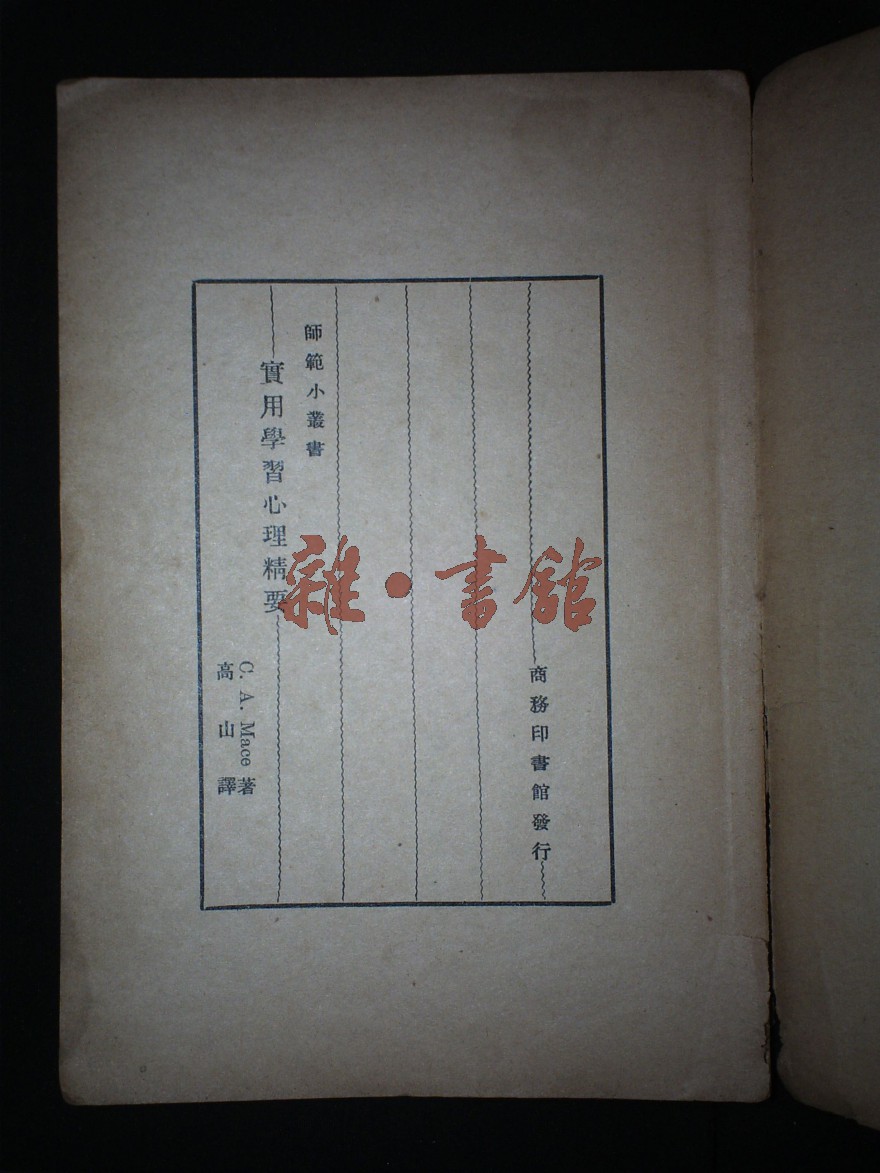 師範小叢書
實用學習心理精要
C. A. Mace 著
高山譯
商務印書館發行
雜·書館